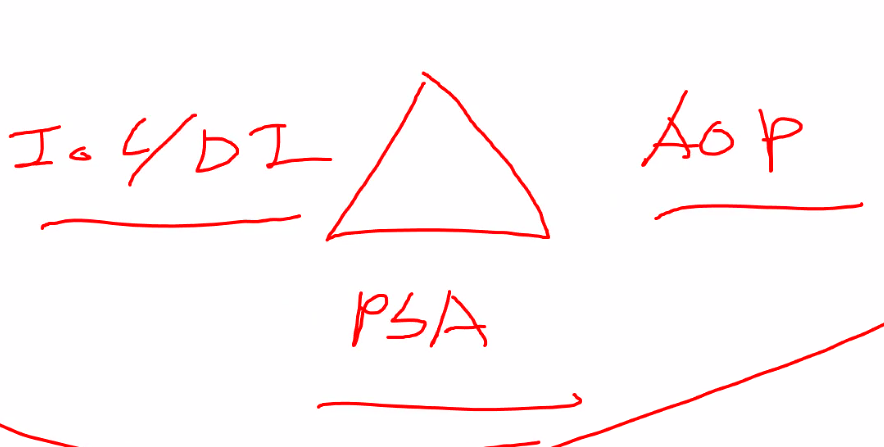 IoC/DI
AOP
PSA